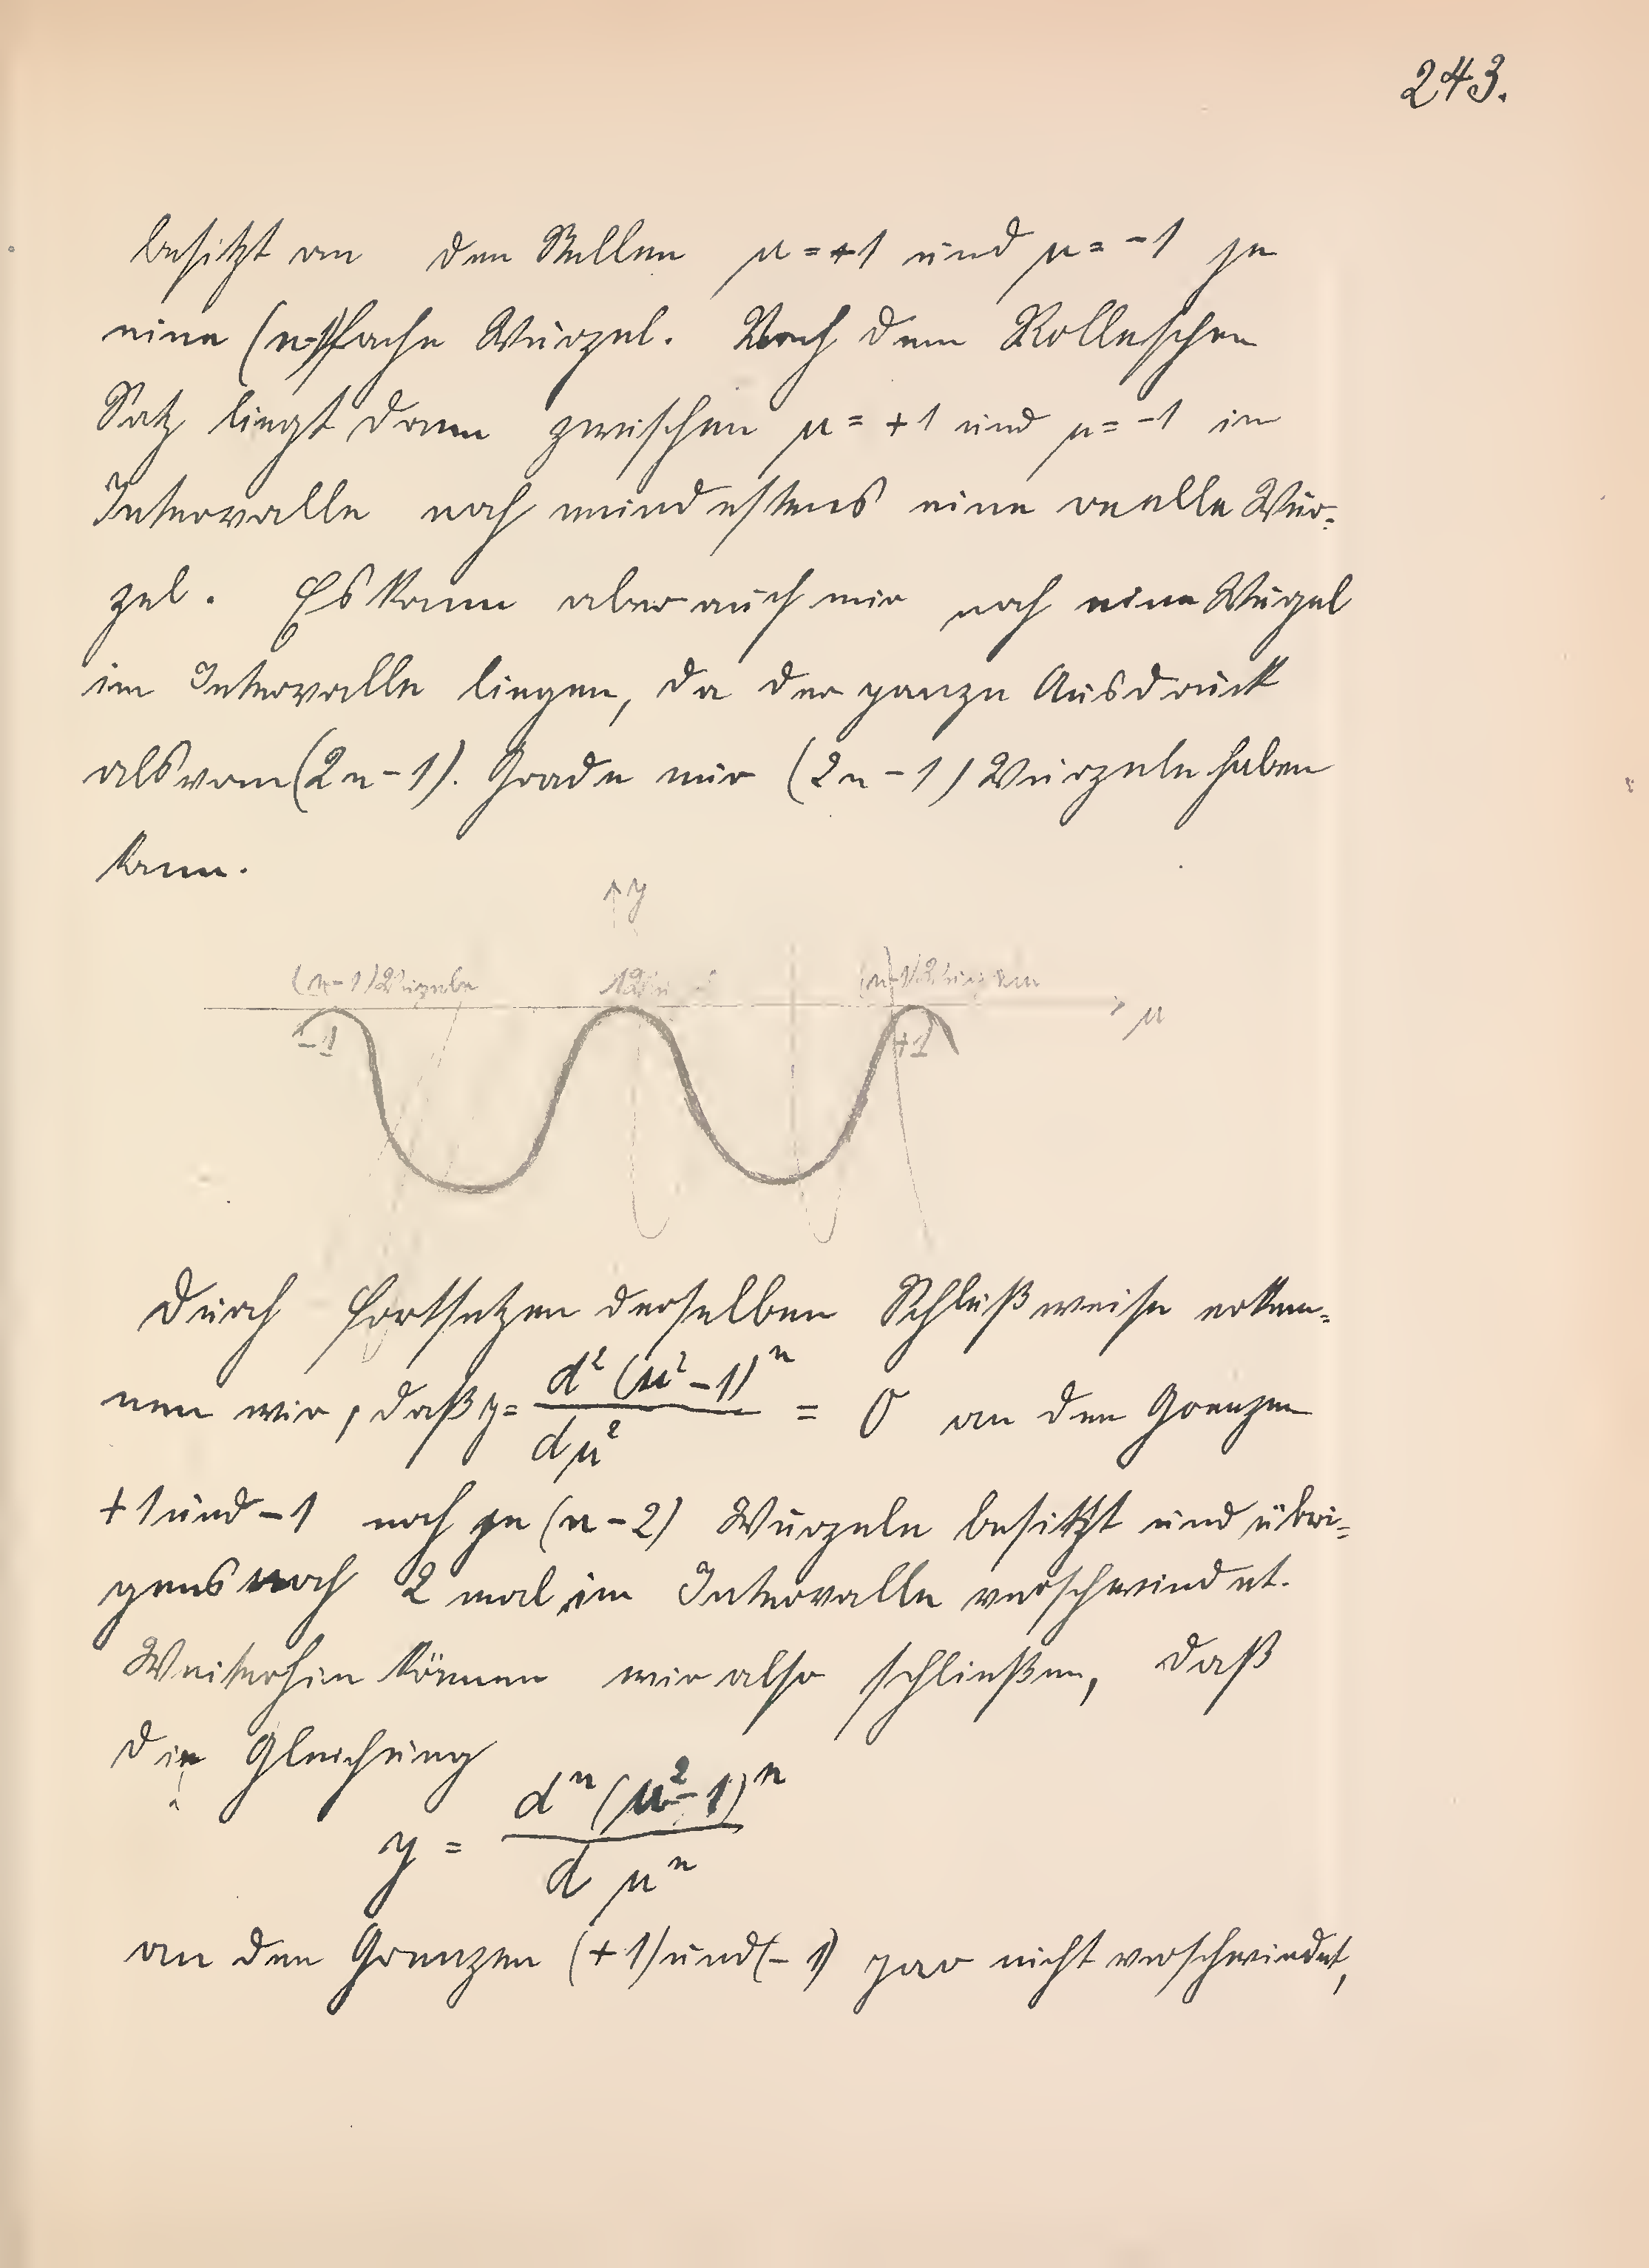 243.
besitzt an den Stellen μ = +1 und μ = -1 je
eine (n-1)fache Wurzel. Nach dem Rolleschen
Satz liegt dann zwischen μ = +1 und μ = -1 im
Intervalle noch mindestens eine reelle Wur-
zel. Es kann aber auch nur noch eine Wurzel
im Intervalle liegen, da der ganze Ausdruck
als vom (2n-1). Grade nur (2n-1) Wurzeln haben
kann.
y
(n-1) Wurzeln 1 (n-1) Wurzeln
μ
-1 +1
Durch Fortsetzen derselben Schlußweise erken-
nen wir, daß y = d²(μ²-1)ⁿ / dμ² = 0 an den Grenzen
+1 und -1 noch je (n-2) Wurzeln besitzt und übri-
gens noch 2 mal im Intervalle verschwindet.
Weiterhin können wir also schließen, daß
die Gleichung
y = dⁿ(μ²-1)ⁿ / dμⁿ
an den Grenzen (+1) und (-1) gar nicht verschwindet,